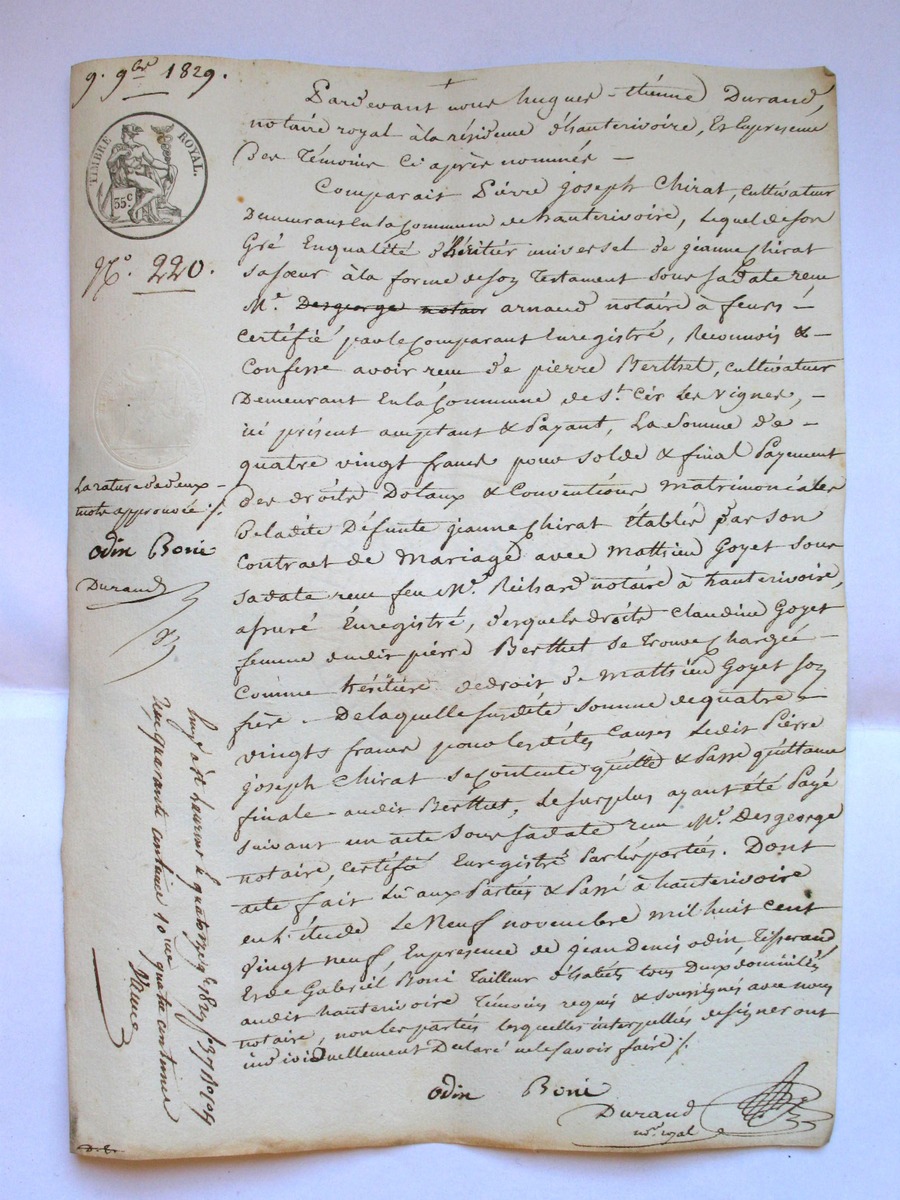 9. 9bre 1829.
TIMBRE ROYAL.
35 c
N°. 220.
Pardevant nous hugues-étienne Durand,
notaire royal à la résidence d'hauterivoire, Et la presence
Des témoins Ci après nommés —
Comparait Pierre joseph Chirat, cultivateur
Demeurant En la Commune de hauterivoire, lequel de son
Gré En qualité d'héritier universel de jeanne Chirat
sa soeur à la forme de son testament sous sa date recu
Me. Desgeorge notaire arnaud notaire à feurs —
certifié par le Comparant Enregistré, Reconnois &
Confesse avoir recu de pierre Berthet, cultivateur
Demeurant En la Commune de St. Cir les Vignes, —
ici présent acceptant & Payant, La somme de —
quatre vingt francs pour solde & final Payement
des droits Dotaux & Conventions matrimoniales
De ladite Défunte jeanne Chirat établis par son
Contrat de mariage avec mathieu Goyet sous
sa date recu feu Me. Richard notaire à hauterivoire,
assuré Enregistré, desquels droits Claudine Goyet
femme dudit pierre Berthet se trouve Chargée —
Comme héritière de droit de mathieu Goyet son
frère — De laquelle susdite somme de quatre
vingts francs pour lesdites Causes ledit Pierre
joseph Chirat se Contente quitte & Passe quittance
finale audit Berthet, le surplus ayant été Payé
suivant un acte sous sa date recu Me. Desgeorge
notaire, certifié Enregistré Par les parties. Dont
acte fait Lû aux Parties & Passé à hauterivoire
en l'étude Le Neuf novembre mil huit cent
vingt neuf, En presence de jean Denis odin Tisserand
Et de Gabriel Boni Tailleur d'habits tous Deux domiciliés
audit hauterivoire Témoins requis & soussignés avec nous
notaire, non les parties lesquelles interpellées de signer ont
individuellement Declaré ne le savoir faire ./.
odin Boni
Durand
nre. royal
La rature de deux
mots approuvée ./.
odin Boni
Durand
Reçu quarante centimes 10me quatre centimes